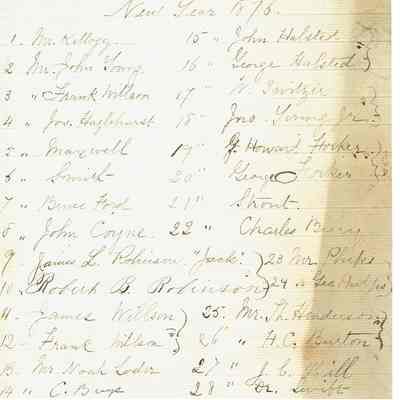 New Year 1876.
1. Mr. Kellogg 15 " John Halsted
2 Mr. John Young 16 " George Halsted
3 " Frank Willson 17 " W.
4 " Jos. Hazlehurst 18 " Jno. Young Jr.
5 " Maxwell 19 " G. Howard Forker
6 " Smith 20 " George Forker
7 " Bruce Ford 21 " Strout.
8 " John Coyne 22 " Charles Berry
9 James L. Robinson "Jack" 23 Mr. Phelps
10. Robert B. Robinson 24 " Geo Phelps
11. James Willson 25. Mr. Th. Henderson
12 - Frank Willson 26 " H. C. Burton
13. Mr. Noah Loder 27 " J. C. Hill
14 " C. Buys 28 " Dr. Swift